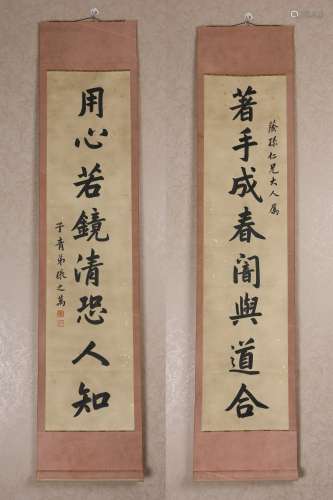 蔭孫仁兄大人屬
著手成春闇與道合
用心若鏡清恐人知
子青弟張之萬